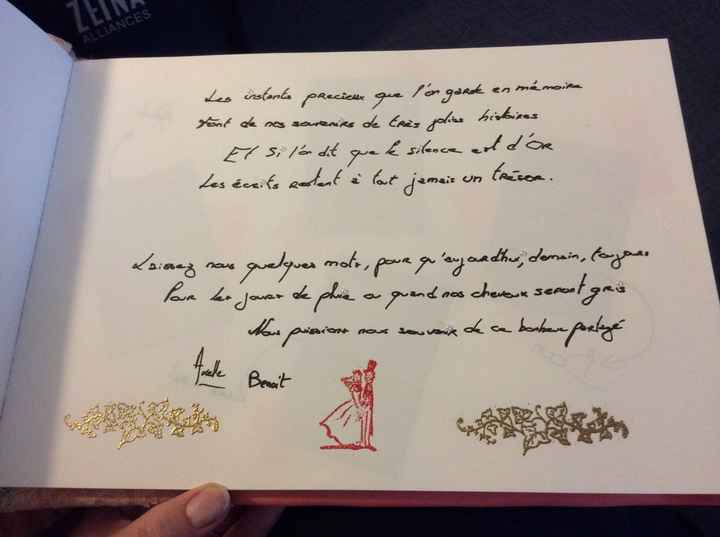 ZEINA
ALLIANCES
Les instants précieux que l'on garde en mémoire
Font de nos souvenirs de très jolies histoires
Et si l'on dit que le silence est d'Or
Les écrits restent à tout jamais un trésor.
Laissez nous quelques mots, pour qu'aujourd'hui, demain, toujours
Pour les jours de pluie ou quand nos cheveux seront gris
Nous puissions nous souvenir de ce bonheur partagé
Axelle
Benoit